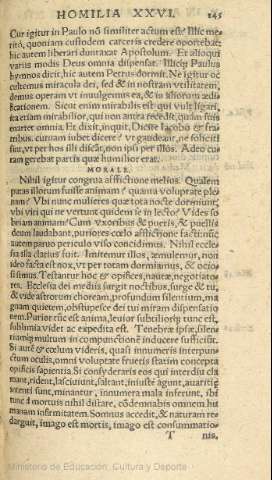 HOMILIA XXVI. 145
Cur igitur in Paulo nō similiter actum est? Illic me
ritò, quoniam custodem carceris credere oportebat:
hic autem liberari duntaxat Apostolum. Et alioqui
varijs modis Deus omnia dispensat. Illic Paulus
hymnos dicit, hic autem Petrus dormit. Ne igitur oc
cultemus miracula dei, sed & in nostram vtilitatem,
demus operam vt inuulgemus ea, & in aliorum ædi
ficationem. Sicut enim mirabilis est qui vult ligari,
ita etiam mirabilior, qui non antea recedit, quàm
omnia. Et dixit, inquit, Dicite Iacobo & fra
tribus. cuiusnā iubet dicere? vt gaudeant, ne soliciti
sint, vt per hos illi discāt, non ipsi per illos. Adeo cu
ram gerebat partis quæ humilior erat.
MORALE.
Nihil igitur congrua afflictione melius. Qualem
putas illorum fuisse animam? quanta voluptate ple
nam? Vbi nunc mulieres quæ tota nocte dormiunt?
vbi viri qui ne vertunt quidem se in lecto? Vides so
briam animam? Cum vxoribus & pueris, & puellis
deum laudabant, puriores cœlo afflictione facti: nūc
autem paruo periculo viso concidimus. Nihil eccle
sia illa clarius fuit. Imitemur illos, æmulemur, non
ideo facta est nox, vt per totam dormiamus, & ocio
si simus. Testantur hoc & opifices, nautæ, negotiato
res. Ecclesia dei medijs surgit noctibus, surge & tu,
& vide astrorum choream, profundum silentium, ma
gnam quietem, obstupesce dei tui miram dispensatio
nem. Purior tūc est anima, leuior subtiliorq́; tunc est,
sublimis videt ac expedita est. Tenebræ ipsæ, silen
tiumq́; multum in compunctionē inducere sufficiūt.
Si autē & cœlum videris, quasi innumeris interpun
ctum oculis, omni voluptate frueris statim conceptā
opificis sapientia. Si consyderaris eos qui interdiu cla
mant, rident, lasciuiunt, saltant, iniustè agunt, auaritiæ
intenti sunt, minantur, innumera mala inferunt, ibi
tunc à mortuis nihil distare, cōdemnabis omnem hu
manam infirmitatem. Somnus accedit, & naturam re
darguit, imago est mortis, imago est consummatio
T nis,
Ministerio de Educación, Cultura y Deporte